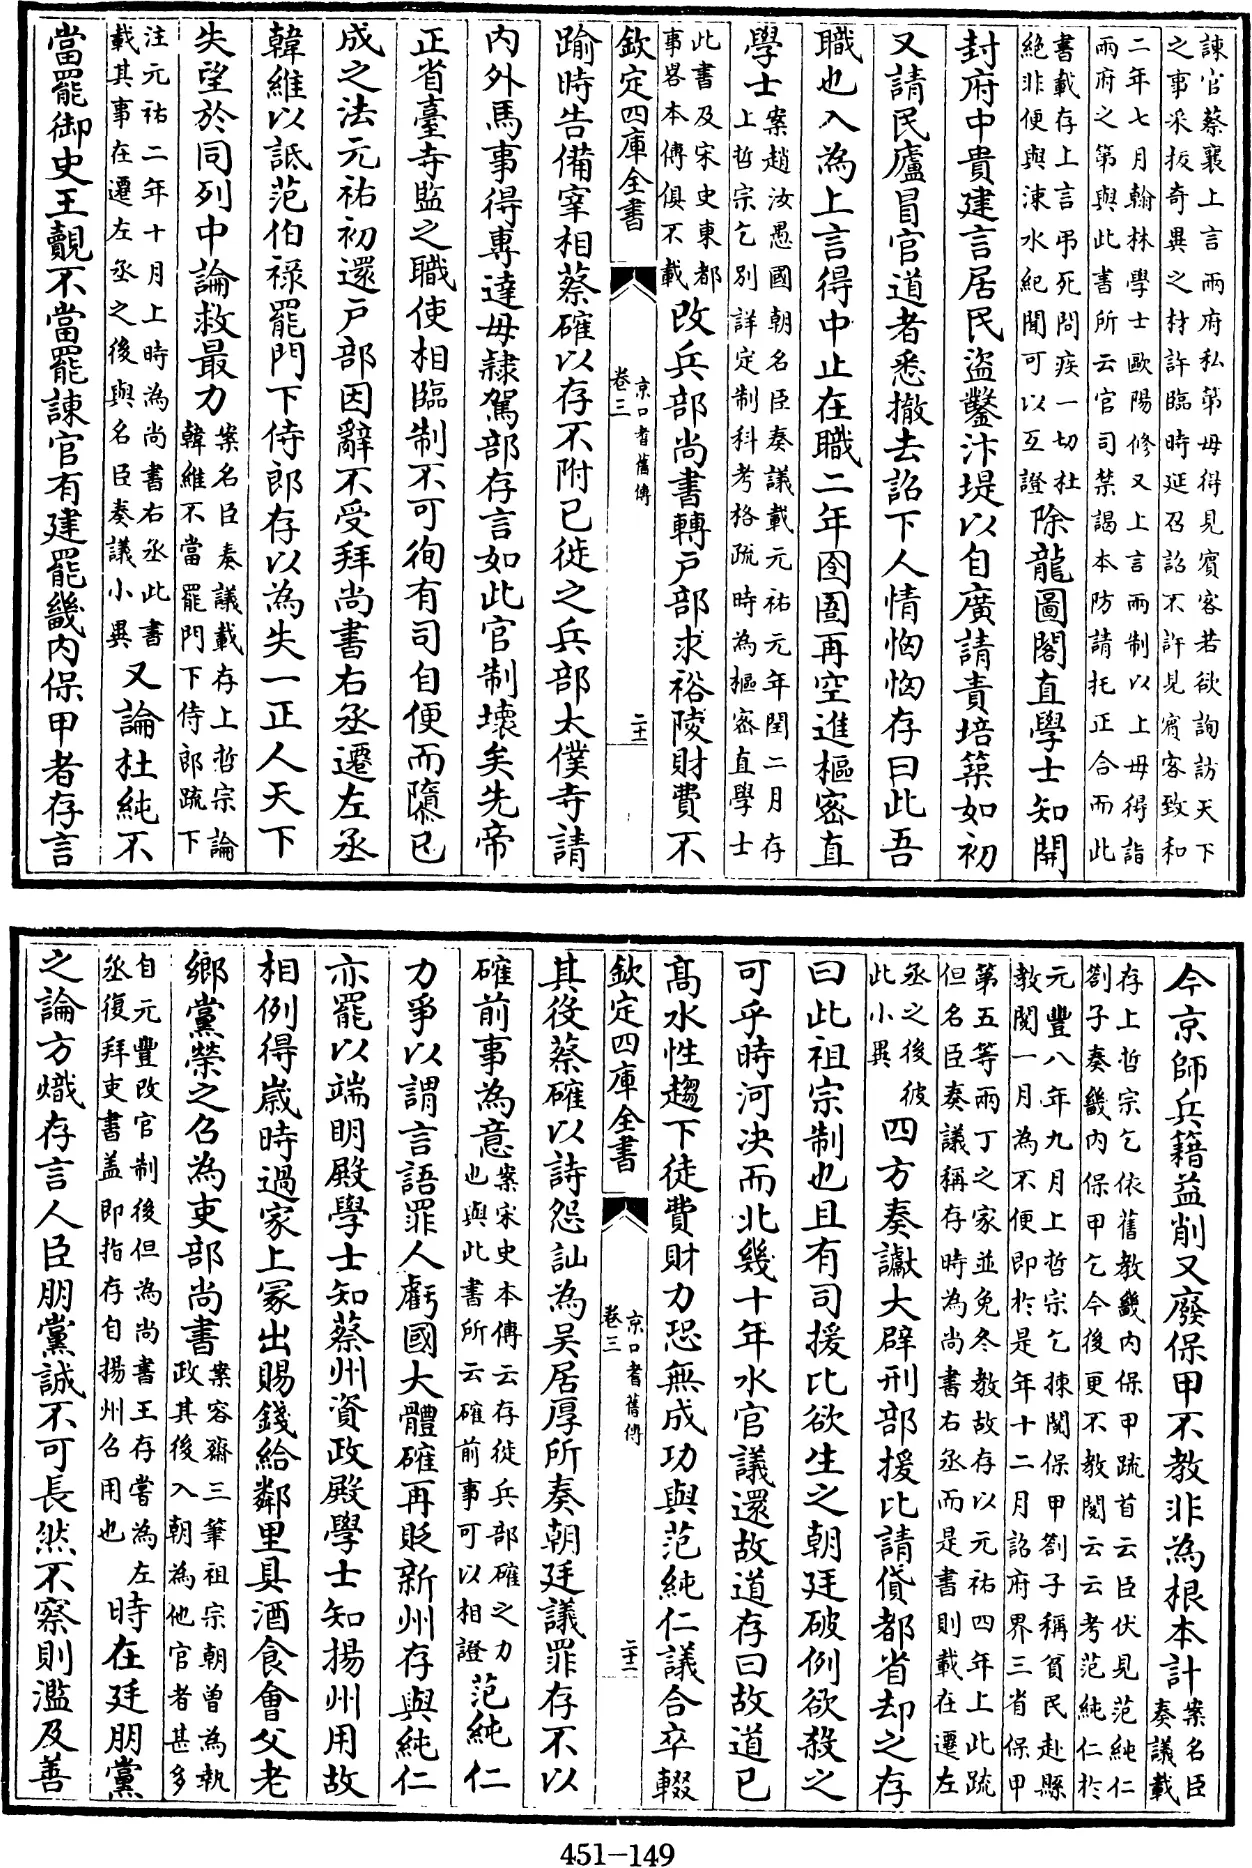 諫官蔡襄上言兩府私第毋得見賓客若欲詢訪天下
之事采拔奇異之材許臨時延召詔不許見賓客致和
二年七月翰林學士歐陽修又上言兩制以上毋得詣
兩府之第與此書所云官司禁謁本防請托正合而此
書載存上言弔死問疾一切杜
絶非便與涑水紀聞可以互證除龍圖閣直學士知開
封府中貴建言居民盜鑿汴堤以自廣請責培築如初
又請民廬冒官道者悉撤去詔下人情恟恟存曰此吾
職也入為上言得中止在職二年囹圄再空進樞密直
學士案趙汝愚國朝名臣奏議載元祐元年閏二月存
上哲宗乞别詳定制科考格疏時為樞密直學士
此書及宋史東都
事畧本傳俱不載改兵部尚書轉戸部求裕陵財費不
欽定四庫全書
京口耆舊傳
卷三
二十一
踰時告備宰相蔡確以存不附已徙之兵部太僕寺請
内外馬事得專達毋隷駕部存言如此官制壞矣先帝
正省臺寺監之職使相臨制不可徇有司自便而隳已
成之法元祐初還戸部因辭不受拜尚書右丞遷左丞
韓維以詆范伯禄罷門下侍郎存以為失一正人天下
失望於同列中論救最力案名臣奏議載存上哲宗論
韓維不當罷門下侍郎疏下
注元祐二年十月上時為尚書右丞此書
載其事在遷左丞之後與名臣奏議小異又論杜純不
當罷御史王覿不當罷諫官有建罷畿内保甲者存言
今京師兵籍益削又廢保甲不教非為根本計案名臣
奏議載
存上哲宗乞依舊教畿内保甲疏首云臣伏見范純仁
劄子奏畿内保甲乞今後更不教閲云云考范純仁於
元豐八年九月上哲宗乞揀閲保甲劄子稱貧民赴縣
教閲一月為不便即於是年十二月詔府界三省保甲
第五等兩丁之家並免冬教故存以元祐四年上此疏
但名臣奏議稱存時為尚書右丞而是書則載在遷左
丞之後彼
此小異四方奏讞大辟刑部援比請貸都省却之存
曰此祖宗制也且有司援比欲生之朝廷破例欲殺之
可乎時河決而北幾十年水官議還故道存曰故道已
高水性趨下徒費財力恐無成功與范純仁議合卒輟
欽定四庫全書
京口耆舊傳
卷三
二十二
其役蔡確以詩怨訕為吴居厚所奏朝廷議罪存不以
確前事為意案宋史本傳云存徙兵部確之力
也與此書所云確前事可以相證范純仁
力爭以謂言語罪人虧國大體確再貶新州存與純仁
亦罷以端明殿學士知蔡州資政殿學士知揚州用故
相例得嵗時過家上冡出賜錢給鄰里具酒食會父老
鄉黨榮之召為吏部尚書案容齋三筆祖宗朝曾為執
政其後入朝為他官者甚多
自元豐改官制後但為尚書王存嘗為左
丞復拜吏書葢即指存自揚州召用也時在廷朋黨
之論方熾存言人臣朋黨誠不可長然不察則濫及善
451-149